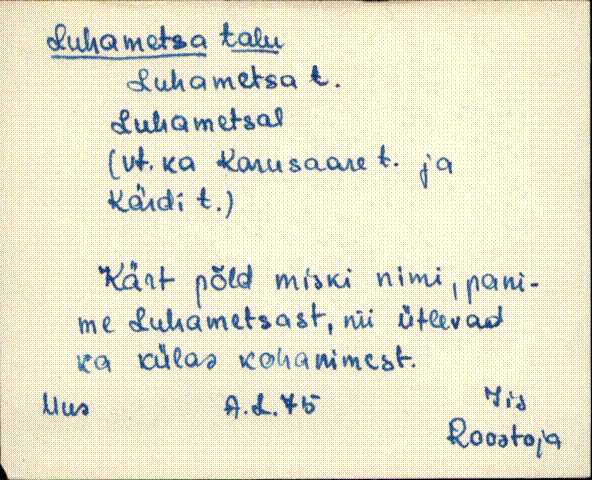 Luhametsa talu
Luhametsa t.
Luhametsal
(vt. ka Karusaare t. ja
Kärdi t.)
Kärt põld miski nimi, pani-
me Luhametsast, nii ütlevad
ka külas kohanimest.
Uus A.L.75 Iis
Roostoja